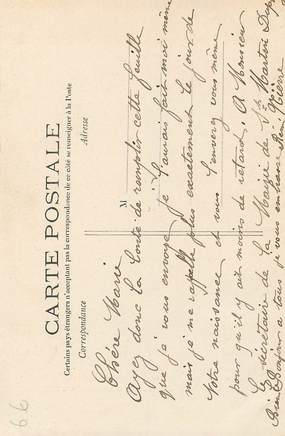 CARTE POSTALE
Certains pays étrangers n'acceptant pas la correspondance de ce côté se renseigner à la Poste
Correspondance
Adresse
M
Chère Marie
Ayez donc la bonté de remplir cette feuille
que je vous envoie, je l'aurais fait moi même
mais je ne me rappelle plus exactement le jour de
votre naissance et vous l'enverez vous même
pour qu'il y ait moins de retard, A Monsieur
le Secrétaire de la Mairie de St Martin
Bien Bonjour a tous je vous embrasse
66